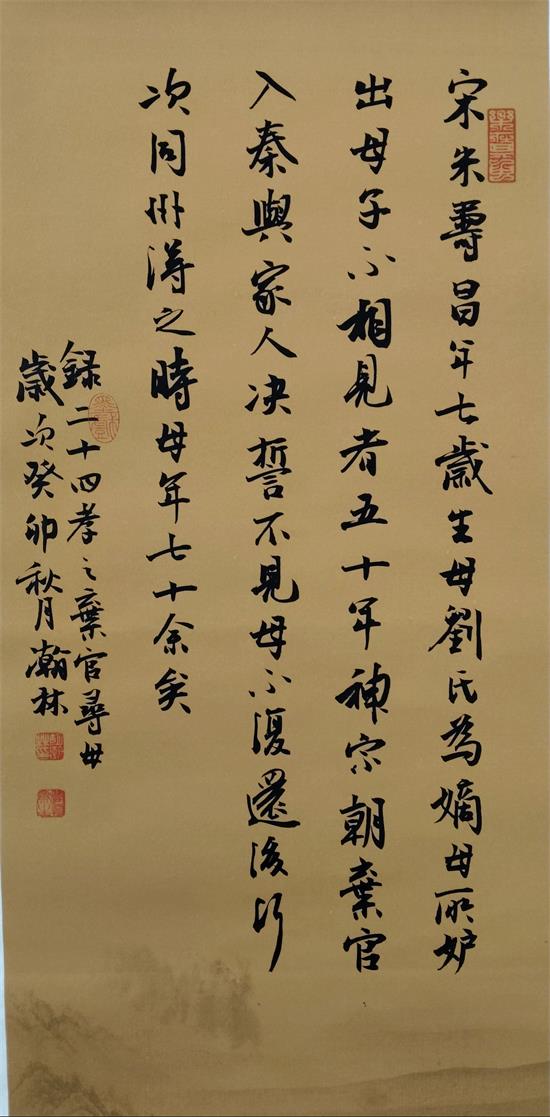 宋朱壽昌年七歲生母劉氏為嫡母所妒
出母子不相見者五十年神宗朝棄官
入秦與家人决誓不見母不復還後行
次同州得之時母年七十余矣
錄二十四孝之棄官尋母
歲次癸卯秋月瀚林